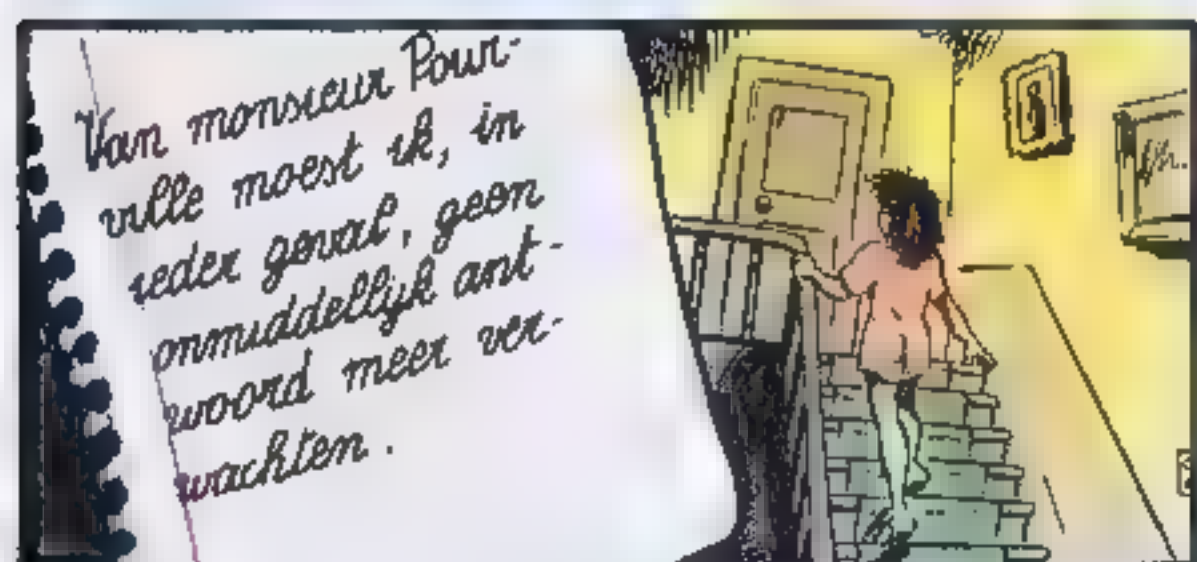 Van monsieur Pour-
ville moest ik, in
ieder geval, geen
onmiddellijk ant-
woord meer ver-
wachten.